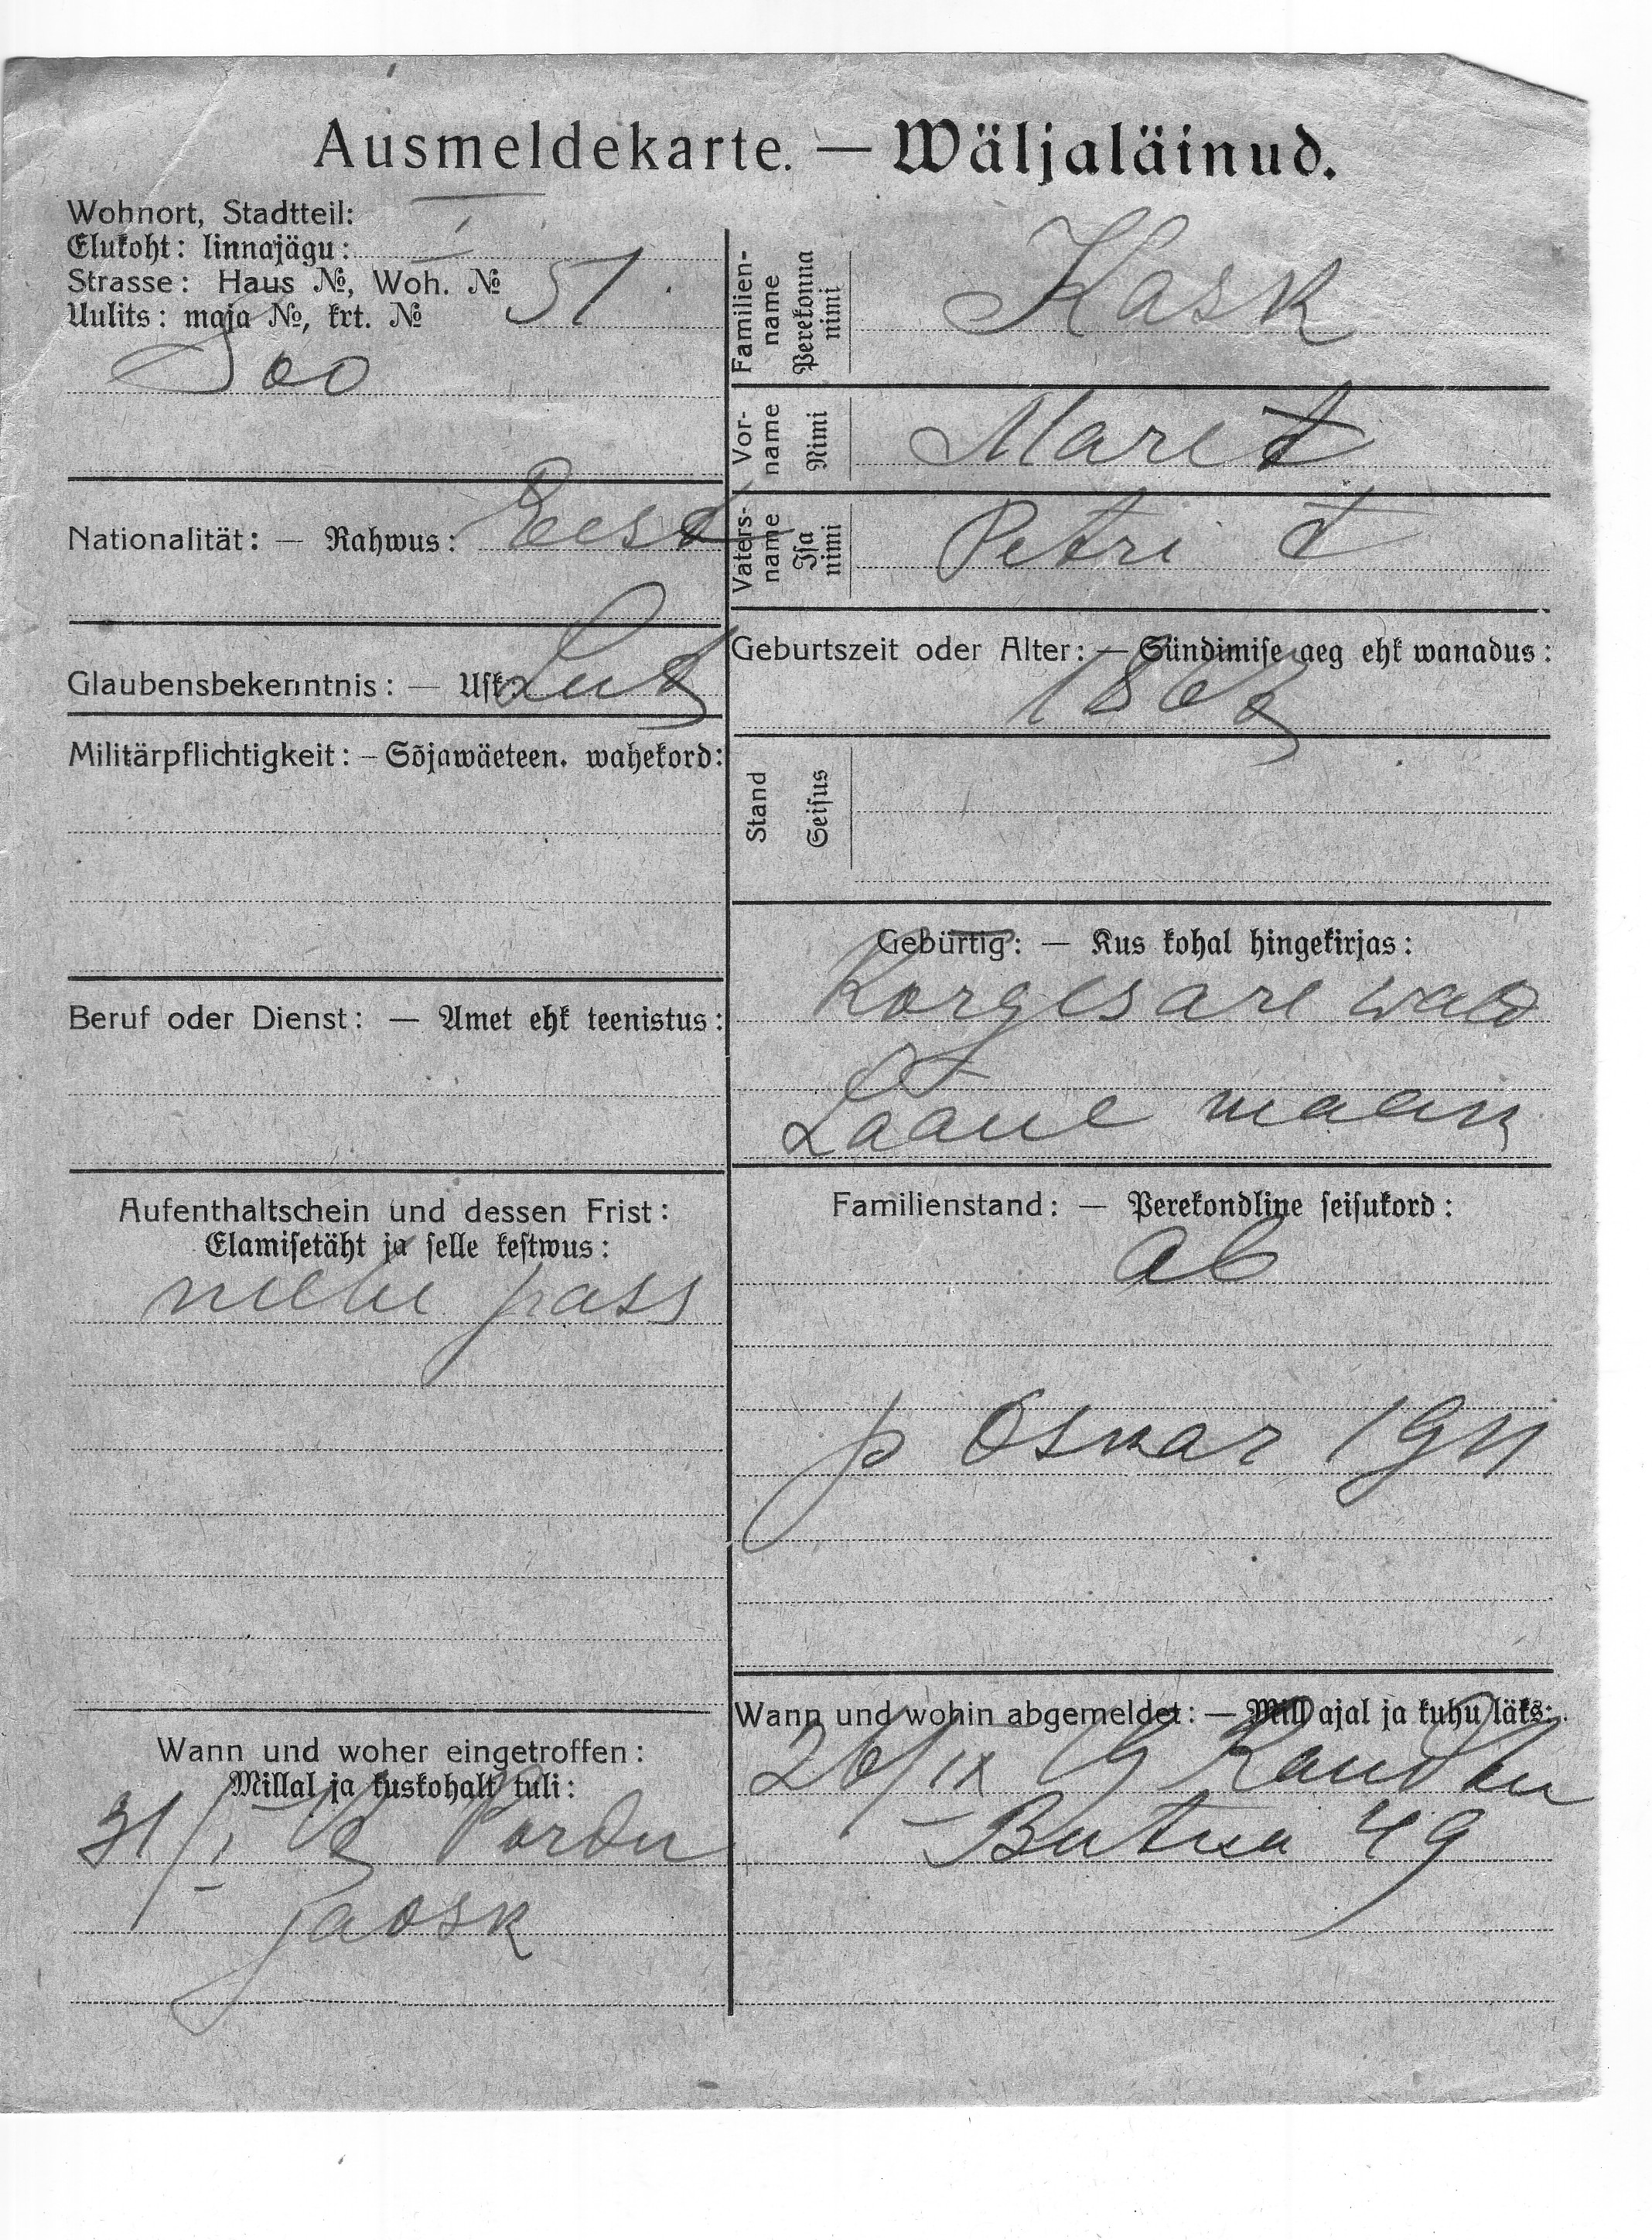 Ausmeldekarte. — Wäljaläinud.
Wohnort, Stadtteil: I
Elukoht: linnajägu:
Strasse: Haus №, Woh. № 51
Uulits: maja №, krt. №
Soo
Nationalität: — Rahwus: Eest
Glaubensbekenntnis: — Usk: Lut
Militärpflichtigkeit: — Sõjawäeteen. wahekord:
Beruf oder Dienst: — Amet ehk teenistus:
Aufenthaltschein und dessen Frist:
Elamisetäht ja selle kestwus:
mehe pass
Wann und woher eingetroffen:
Millal ja kuskohalt tuli:
31/I
jaosk
Familien-name Perekonna nimi Kask
Vor-name Nimi Maret
Vaters-name Isa nimi Petri t
Geburtszeit oder Alter: — Sündimise aeg ehk wanadus:
Stand Seisus
Gebürtig: — Kus kohal hingekirjas:
Korgesare wald
Lääne maan
Familienstand: — Perekondline seisukord:
ab
p Oskar 1911
Wann und wohin abgemeldet: — Mill ajal ja kuhu läks:
26/IX 19
49